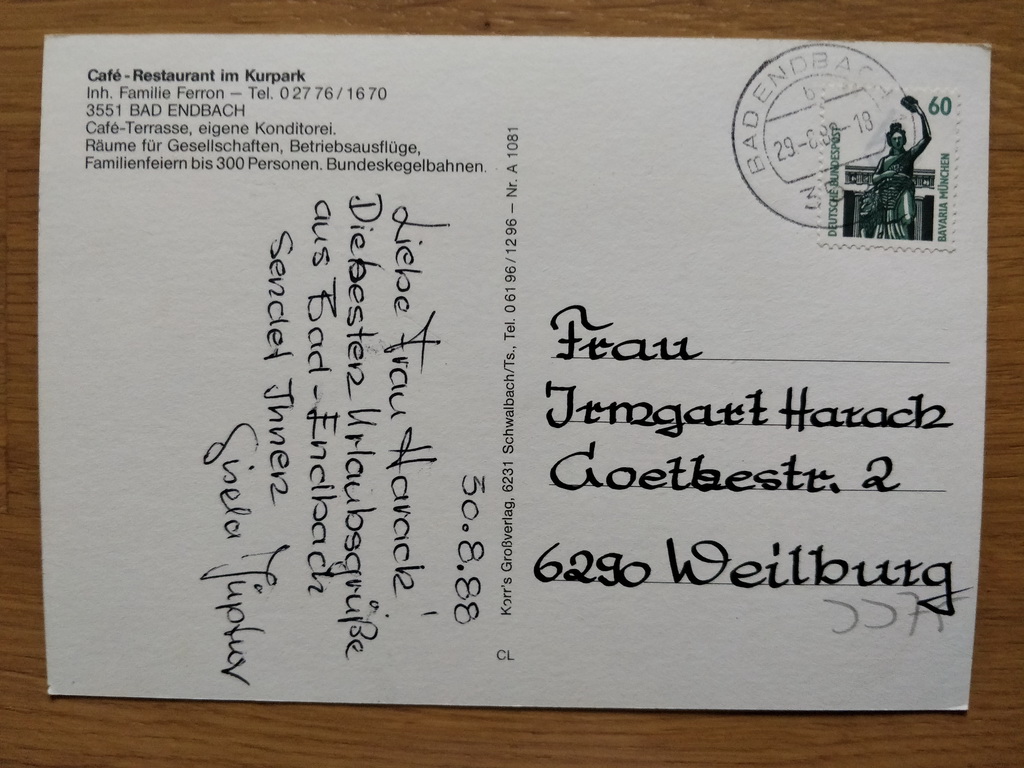 Café-Restaurant im Kurpark
Inh. Familie Ferron – Tel. 0 27 76 / 16 70
3551 BAD ENDBACH
Café-Terrasse, eigene Konditorei.
Räume für Gesellschaften, Betriebsausflüge,
Familienfeiern bis 300 Personen. Bundeskegelbahnen.
30.8.88
Liebe Frau Harack!
Die besten Urlaubsgrüße
aus Bad-Endbach
sendet Ihnen
Gisela
Korr's Großverlag, 6231 Schwalbach/Ts., Tel. 0 61 96 / 12 96 – Nr. A 1081
CL
BAD ENDBACH
b
29.-8.88-18
60
DEUTSCHE BUNDESPOST
BAVARIA MÜNCHEN
Frau
Irmgart Harack
Goethestr. 2
6290 Weilburg